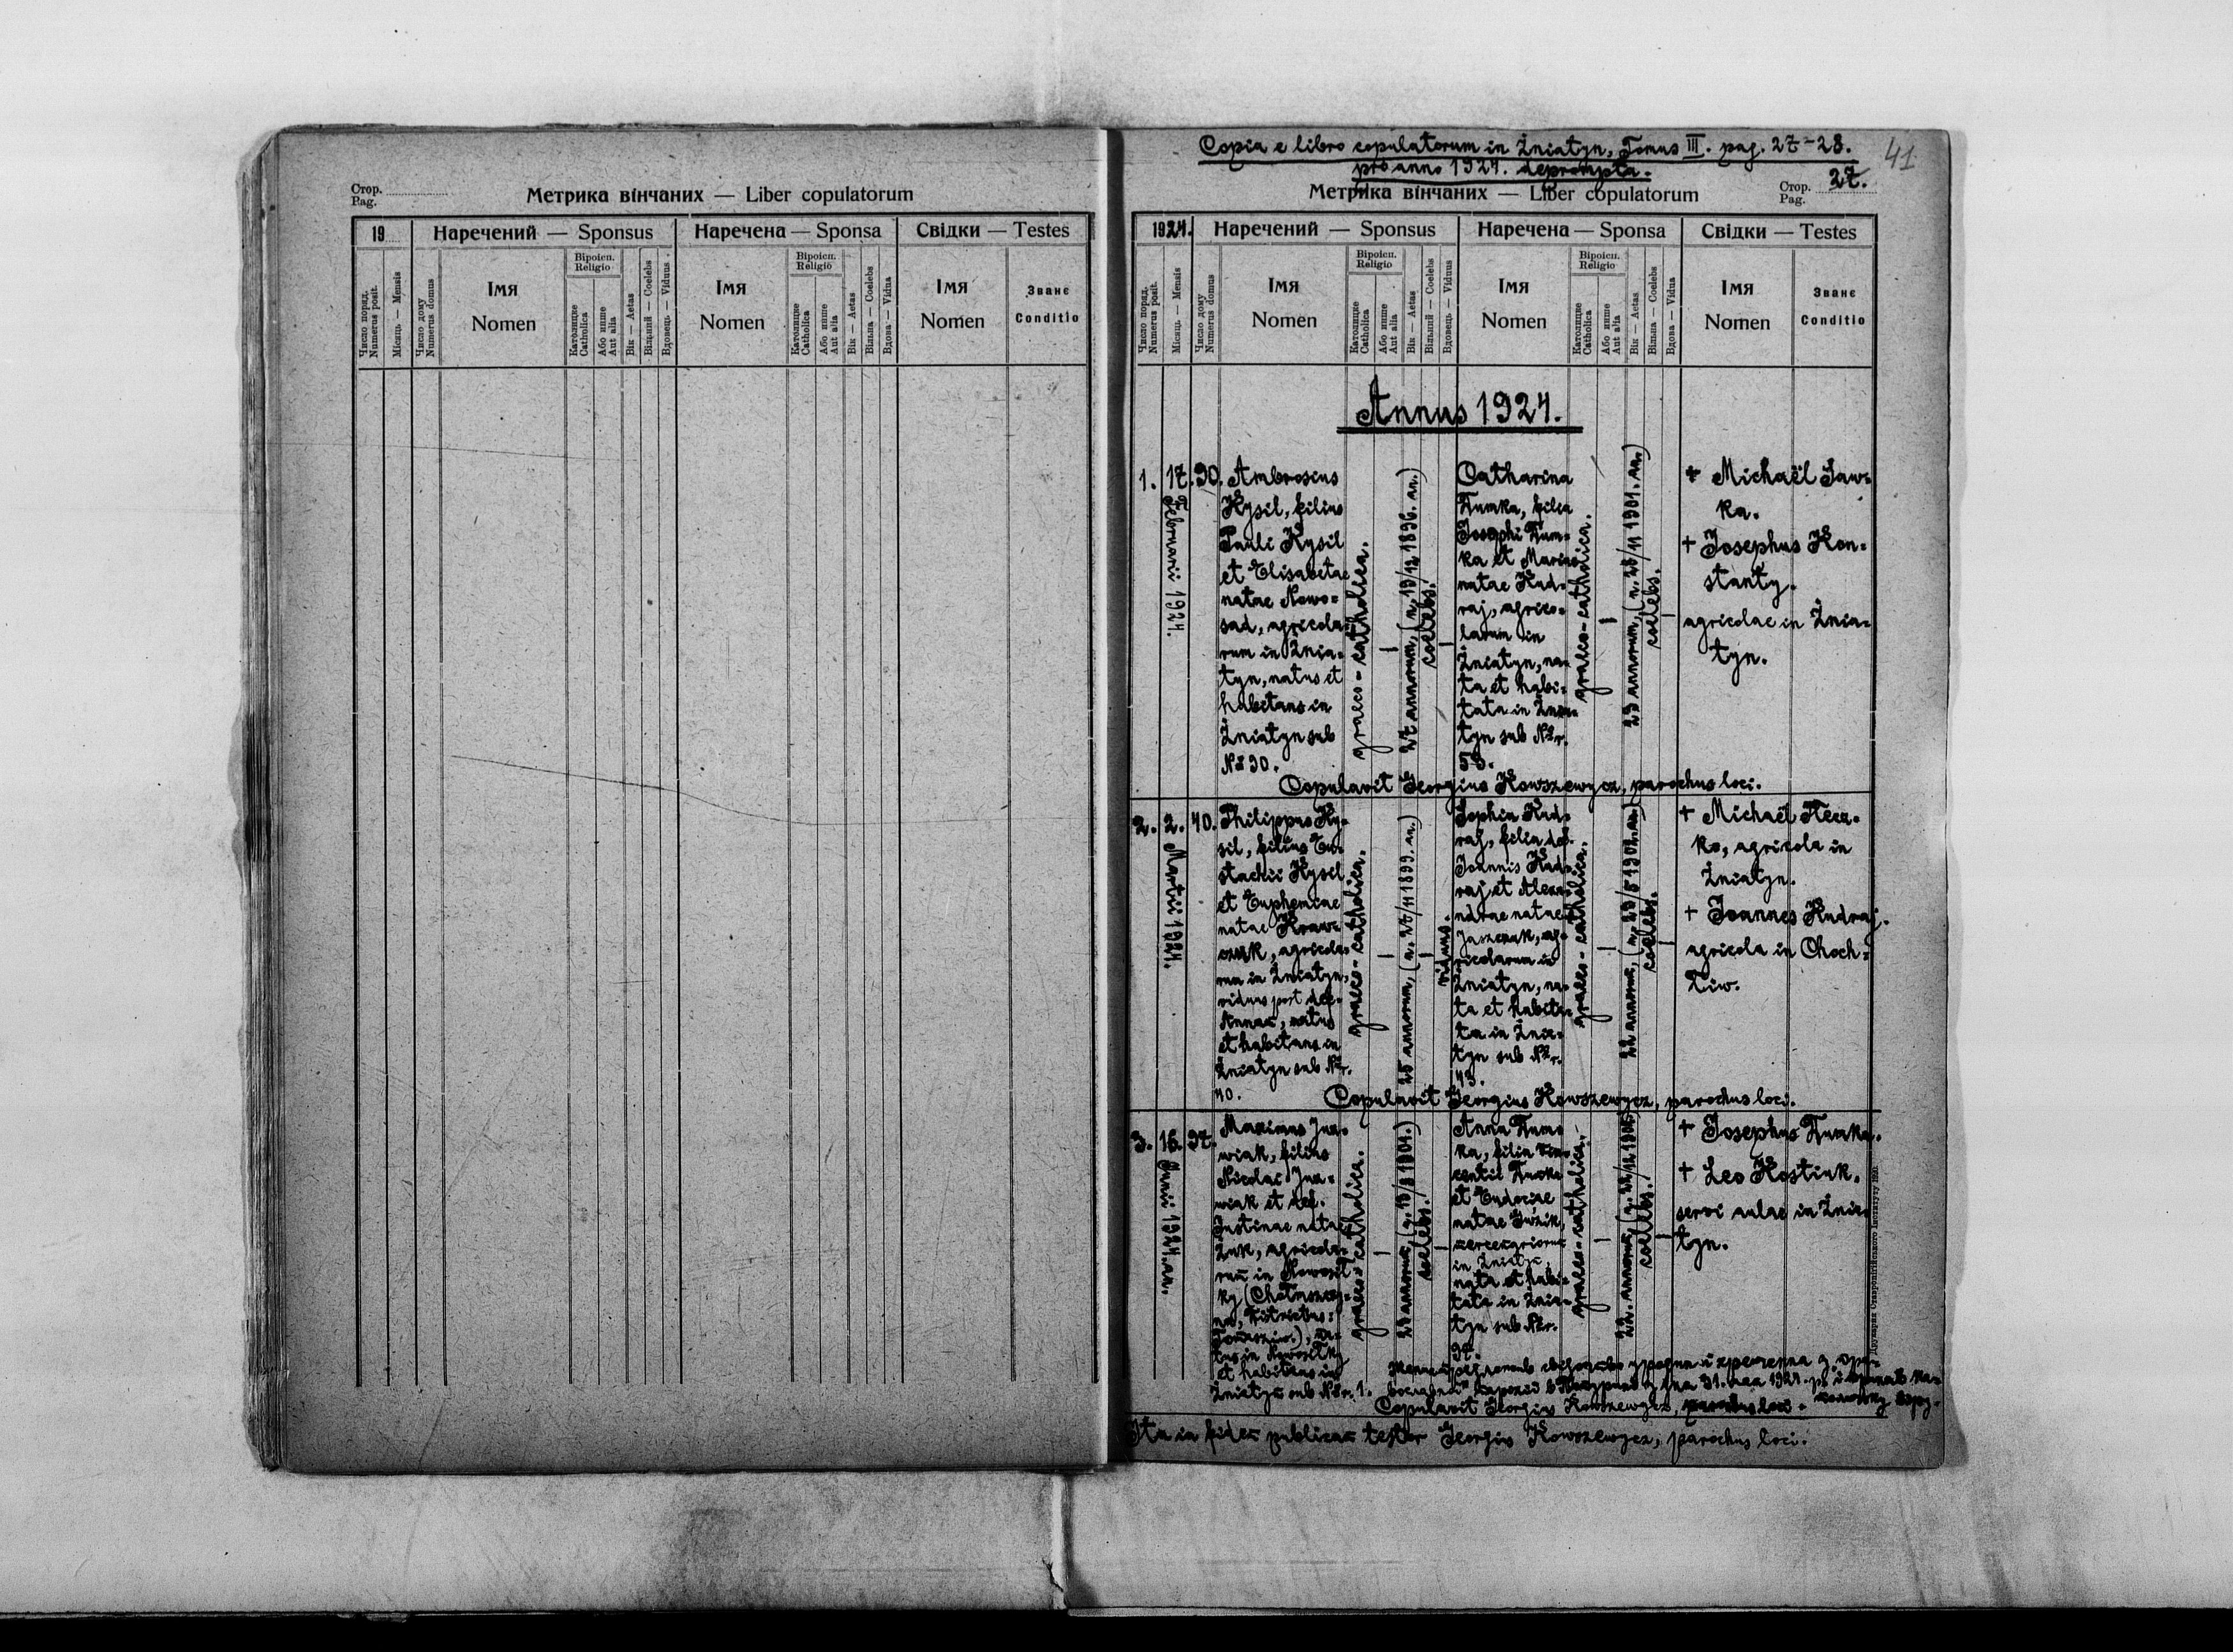 Стор.
Pag.
Метрика вінчаних — Liber copulatorum
19
Наречений — Sponsus
Наречена — Sponsa
Свідки — Testes
Число поряд.
Numerus posit.
Місяць — Mensis
Число дому
Numerus domus
Імя
Nomen
Віроісп.
Religio
Католицке
Catholica
Або инше
Aut alia
Вік — Aetas
Вільний — Coelebs
Вдовець — Viduus
Імя
Nomen
Віроісп.
Religio
Католицке
Catholica
Або инше
Aut alia
Вік — Aetas
Вільна — Coelebs
Вдова — Vidua
Імя
Nomen
Званє
Conditio
Copia e libro copulatorum in Żniatyn, Tomus III. pag. 27-28.
pro anno 1924. deprompta.
41
Метрика вінчаних — Liber copulatorum
Стор.
Pag.
27.
1924.
Наречений — Sponsus
Наречена — Sponsa
Свідки — Testes
Число поряд.
Numerus posit.
Місяць — Mensis
Число дому
Numerus domus
Імя
Nomen
Віроісп.
Religio
Католицке
Catholica
Або инше
Aut alia
Вік — Aetas
Вільний — Coelebs
Вдовець — Viduus
Імя
Nomen
Віроісп.
Religio
Католицке
Catholica
Або инше
Aut alia
Вік — Aetas
Вільна — Coelebs
Вдова — Vidua
Імя
Nomen
Званє
Conditio
Annus 1924.
1.
17.
Februarii 1924.
90.
Ambrosius
Kysil, filius
Pauli Kysil
et Elisabetae
natae Nowo=
sad, agricola=
rum in Żnia=
tyn, natus et
habitans in
Żniatyn sub
Nr 90.
graeco-catholica.
—
27 annorum, (n. 19/12 1896. an.)
coelebs.
—
Catharina
Kumka, filia
Josephi Kum=
ka et Mariae
natae Kud=
raj, agrico=
larum in
Żniatyn, na=
ta et habi=
tata in Żnia=
tyn sub Nr.
53.
graeco-catholica.
—
23 annorum, (n. 23/11 1901. an.)
coelebs.
—
+ Michaël Saw=
ka.
+ Josephus Kon=
stanty.
agricolae in Żnia=
tyn.
Copulavit Georgius Kowszewycz, parochus loci.
2.
2.
Martii 1924.
40.
Philippus Ky=
sil, filius Eu=
stachii Kysil
et Euphemiae
natae Kraw=
czuk, agricola=
rum in Żniatyn,
viduus post def.
Annae, natus
et habitans in
Żniatyn sub Nr.
40.
graeco-catholica.
—
25 annorum, (n. 27/11 1899. an.)
—
viduus.
Sophia Kud=
raj, filia def.
Joannis Kud=
raj et Alexa=
ndrae natae
Jaszczuk, ag=
ricolarum in
Żniatyn, na=
ta et habita=
ta in Żnia=
tyn sub Nr.
43.
graeco-catholica.
—
22 annorum, (n. 29/5 1902. an.)
coelebs.
—
+ Michaël
ko, agricola in
Żniatyn.
+ Joannes Kudraj.
agricola in Choch=
łiw.
Copulavit Georgius Kowszewycz, parochus loci.
3.
16.
Junii 1924. an.
97.
Maximus
wiak, filius
Nicolai
wiak et def.
Justinae natae
Żuk, agricola=
rum in Nowosił=
ky
tus in Nowosiłky
et habitans in
Żniatyn sub Nr. 1.
graeco-catholica.
—
23 annorum,
coelebs.
—
Anna Kum=
ka, filia Vin=
centii Kumka
et Eudociae
natae
in Żniatyn,
nata et habi=
tata in Żnia=
tyn sub Nr.
97.
graeco-catholica.
—
22. annorum,
coelebs.
—
+ Josephus Kumka.
+ Leo Kostiuk.
servi aulae in Żnia=
tyn.
Copulavit Georgius Kowszewycz, parochus loci.
Ita in fidem publicam testor Georgius Kowszewycz, parochus loci.